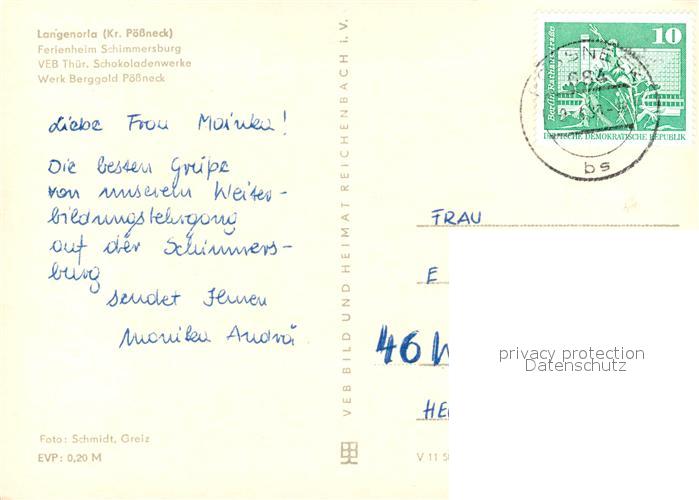 Langenorla (Kr. Pößneck)
Ferienheim Schimmersburg
VEB Thür. Schokoladenwerke
Werk Berggold Pößneck
Liebe Frau Mainka!
Die besten Grüße
von unserem Weiter-
bildungslehrgang
auf der Schimmers-
burg
sendet Ihnen
Monika André
Foto: Schmidt, Greiz
EVP: 0,20 M
VEB BILD UND HEIMAT REICHENBACH i. V.
10
Berlin, Rathausstraße
DEUTSCHE DEMOKRATISCHE REPUBLIK
PÖSSNECK
bs
FRAU
E
46
HE
V 11 5
privacy protection
Datenschutz